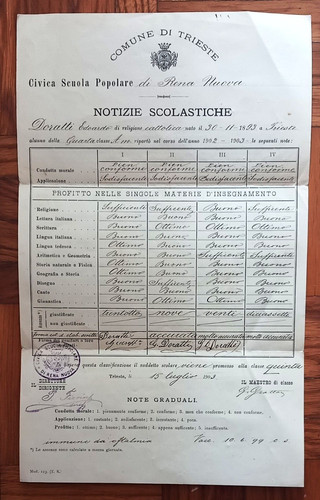 COMUNE DI TRIESTE
Civica Scuola Popolare di Rena Nuova
NOTIZIE SCOLASTICHE
Doratti Edoardo di religione cattolica nato il 30-11-1893 a Trieste
alunno della Quarta classe, riportò nel corso dell'anno 1902-1903 le seguenti note:
I II III IV
Condotta morale Pien conforme Pien conforme Pien conforme Pien conforme
Applicazione Sodisfacente Sodisfacente Sodisfacente Sodisfacente
PROFITTO NELLE SINGOLE MATERIE D'INSEGNAMENTO
Religione Sufficiente Sufficiente Buono Sufficiente
Lettura italiana Buono Buono Buono Buono
Scrittura Buono Ottimo Ottimo Ottimo
Lingua italiana Buono Buono Buono Buono
Lingua tedesca Ottimo Buono Buono Buono
Aritmetica e Geometria Buono Buono Sufficiente Sufficiente
Storia naturale e Fisica Ottimo Buono Buono Buono
Geografia e Storia Ottimo Buono Buono Buono
Disegno Buono Sufficiente Buono Buono
Canto Buono Buono Buono Buono
Ginnastica Buono Ottimo Ottimo Buono
giustificate trentotto nove venti diciassette
non giustificate
accurata
G. Doratti
In base a questa classificazione il suddetto scolare viene promosso alla classe quinta
Trieste, 15 luglio 1903
IL DIRETTORE
DIRIGENTE
IL MAESTRO di classe
NOTE GRADUALI.
Condotta morale: 1. pienamente conforme; 2. conforme; 3. meno che conforme; 4. non conforme.
Applicazione: 1. costante; 2. sodisfacente; 3. insistente; 4. poca.
Profitto: 1. ottimo; 2. buono; 3. sufficiente; 4. appena sufficiente; 5. insufficiente.
immune da oftalmia Vacc. 10.6.99
*) Le assenze sono calcolate a mezze giornate.